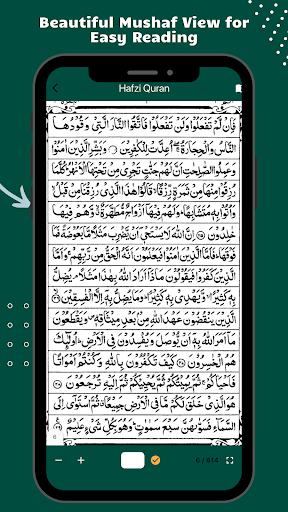 Beautiful Mushaf View for
Easy Reading
Hafzi Quran
فَاِنْ لَّمْ تَفْعَلُوْا وَلَنْ تَفْعَلُوْا فَاتَّقُوا النَّارَ الَّتِیْ وَقُوْدُهَا
النَّاسُ وَالْحِجَارَةُ ۖۚ اُعِدَّتْ لِلْكٰفِرِیْنَ ۝ وَبَشِّرِ الَّذِیْنَ اٰمَنُوْا
وَعَمِلُوا الصّٰلِحٰتِ اَنَّ لَهُمْ جَنّٰتٍ تَجْرِیْ مِنْ تَحْتِهَا الْاَنْهٰرُ ؕ كُلَّمَا
رُزِقُوْا مِنْهَا مِنْ ثَمَرَةٍ رِّزْقًا ۙ قَالُوْا هٰذَا الَّذِیْ رُزِقْنَا مِنْ قَبْلُ ۙ
وَاُتُوْا بِهٖ مُتَشَابِهًا ؕ وَلَهُمْ فِیْهَاۤ اَزْوَاجٌ مُّطَهَّرَةٌ ۙ وَّهُمْ فِیْهَا
خٰلِدُوْنَ ۝ اِنَّ اللّٰهَ لَا یَسْتَحْیٖۤ اَنْ یَّضْرِبَ مَثَلًا مَّا بَعُوْضَةً فَمَا
فَوْقَهَا ؕ فَاَمَّا الَّذِیْنَ اٰمَنُوْا فَیَعْلَمُوْنَ اَنَّهُ الْحَقُّ مِنْ رَّبِّهِمْ ۚ وَاَمَّا
الَّذِیْنَ كَفَرُوْا فَیَقُوْلُوْنَ مَاذَاۤ اَرَادَ اللّٰهُ بِهٰذَا مَثَلًا ۘ یُضِلُّ
بِهٖ كَثِیْرًا ۙ وَّیَهْدِیْ بِهٖ كَثِیْرًا ؕ وَمَا یُضِلُّ بِهٖۤ اِلَّا الْفٰسِقِیْنَ ۝
الَّذِیْنَ یَنْقُضُوْنَ عَهْدَ اللّٰهِ مِنْۢ بَعْدِ مِیْثَاقِهٖ ۪ وَیَقْطَعُوْنَ
مَاۤ اَمَرَ اللّٰهُ بِهٖۤ اَنْ یُّوْصَلَ وَیُفْسِدُوْنَ فِی الْاَرْضِ ؕ اُولٰٓئِكَ
هُمُ الْخٰسِرُوْنَ ۝ كَیْفَ تَكْفُرُوْنَ بِاللّٰهِ وَكُنْتُمْ اَمْوَاتًا
فَاَحْیَاكُمْ ۚ ثُمَّ یُمِیْتُكُمْ ثُمَّ یُحْیِیْكُمْ ثُمَّ اِلَیْهِ تُرْجَعُوْنَ ۝
هُوَ الَّذِیْ خَلَقَ لَكُمْ مَّا فِی الْاَرْضِ جَمِیْعًا ۗ ثُمَّ اسْتَوٰۤی اِلَی
السَّمَآءِ فَسَوّٰىهُنَّ سَبْعَ سَمٰوٰتٍ ؕ وَهُوَ بِكُلِّ شَیْءٍ عَلِیْمٌ ۝
6 / 614